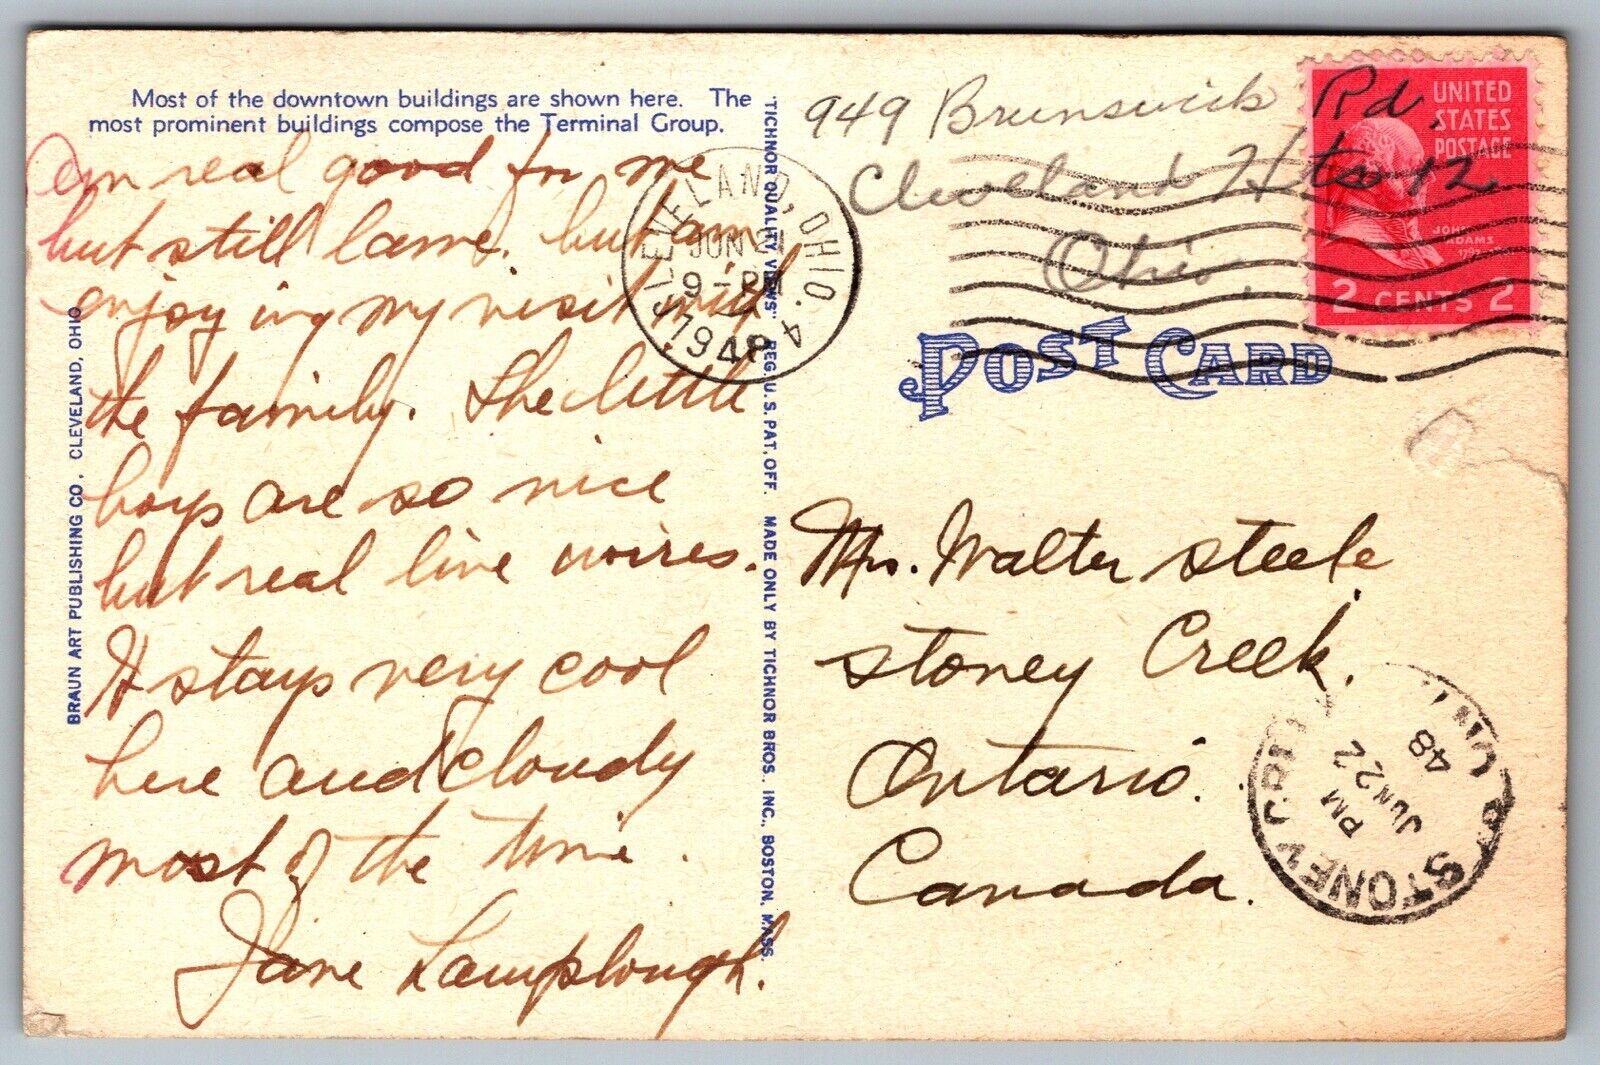 Most of the downtown buildings are shown here. The
most prominent buildings compose the Terminal Group.
Am real good for me
but still lame. but am
enjoying my visit with
the family. The little
boys are so nice
but real live wires.
It stays very cool
here and cloudy
most of the time.
Jane Lamplough.
BRAUN ART PUBLISHING CO., CLEVELAND, OHIO
"TICHNOR QUALITY VIEWS" REG. U. S. PAT. OFF. MADE ONLY BY TICHNOR BROS. INC., BOSTON, MASS.
CLEVELAND, OHIO. 4
JUN 21
9 - PM
1948
949 Brunswick Rd.
Cleveland Hts 12
Ohio.
UNITED
STATES
POSTAGE
JOHN
ADAMS
2 CENTS 2
POST CARD
Mrs. Walter Steele
Stoney Creek.
Ontario.
Canada.
STONEY CREEK
PM
JUN 22
48
ONT.